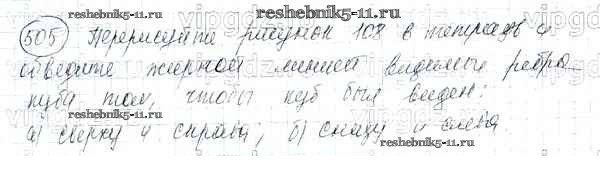 reshebnik.me reshebnik.me
505 Перерисуйте рисунок 107 в тетрадь и
обведите жирной линией видимые ребра
куба так, чтобы куб был виден:
а) сверху и справа; б) снизу и слева
reshebnik.me reshebnik.me